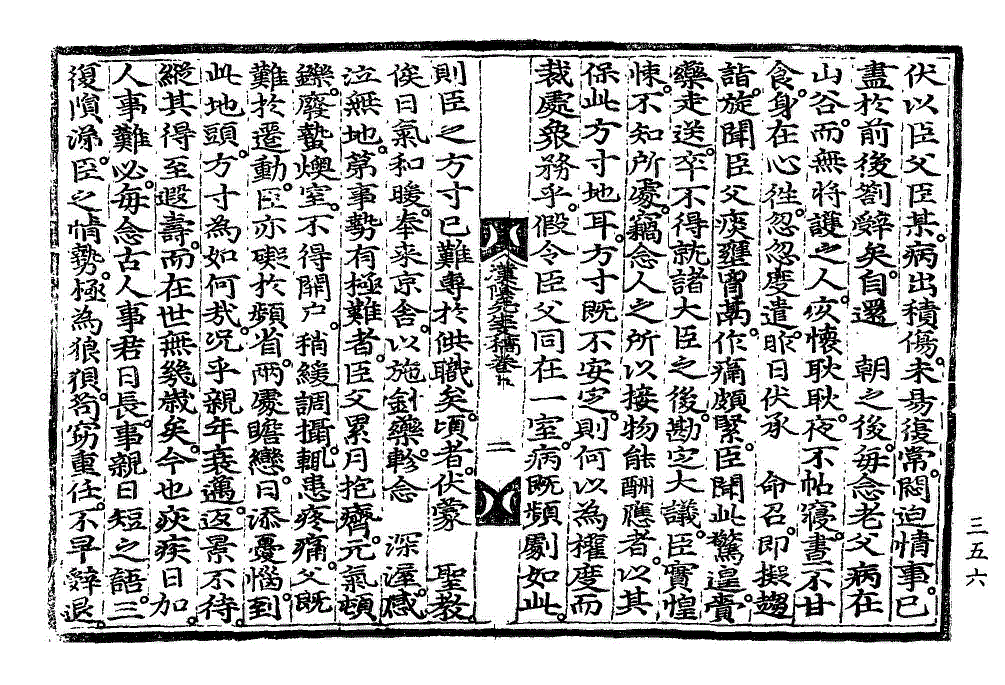 伏以臣父臣某。病出積傷。未易復常。悶迫情事。已
盡於前後劄辭矣。自還　朝之後。每念老父病在
山谷。而無將護之人。疚懷耿耿。夜不帖寢。晝不甘
食。身在心徃。忽忽度遣。昨日伏承　命召。卽擬趨
詣。旋聞臣父痰壅胷萬。作痛頗緊。臣聞此驚遑。賷
藥走送。卒不得就諸大臣之後。勘定大議。臣實惶
悚。不知所處。竊念人之所以接物能酬應者。以其
保此方寸地耳。方寸旣不安定。則何以爲權度而
裁處衆務乎。假令臣父同在一室。病旣頻劇如此。
漢陰先生文稿卷九
二
則臣之方寸已難專於供職矣。頃者。伏蒙　聖教
俟日氣和暖。奉來京舍。以施針藥。軫念　深渥。感
泣無地。第事勢有極難者。臣父累月抱癠。元氣頓
鑠。廢蟄燠室。不得開戶。稍緩調攝。輒患疼痛。父旣
難於遷動。臣亦礙於頻省。兩處瞻戀。日添憂惱。到
此地頭。方寸爲如何哉。况乎親年衰邁。返景不待。
縱其得至遐壽。而在世無幾歲矣。今也疾疾日加。
人事難必。每念古人事君日長。事親日短之語。三
復愴深。臣之情勢。極爲狼狽。苟竊重任。不早辭退。
三五六